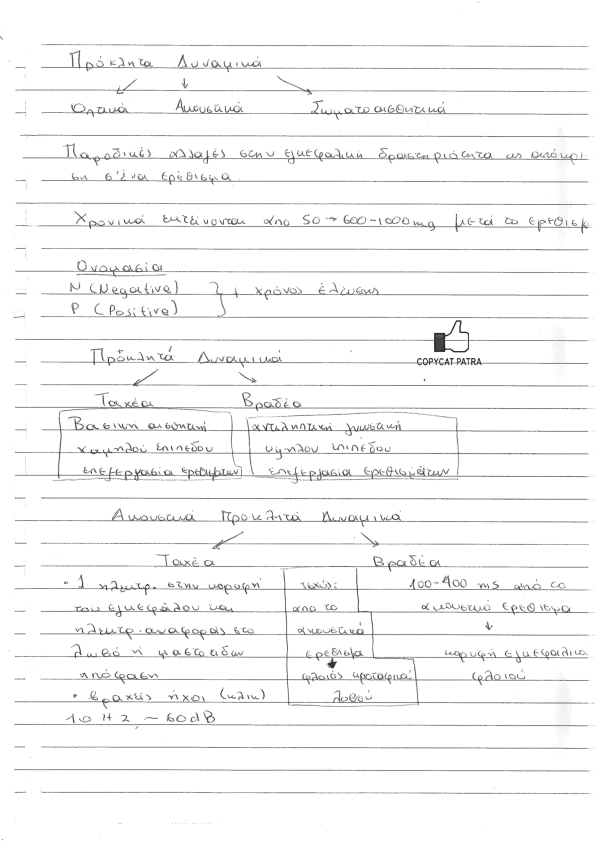 Πρόκλητα Δυναμικά
Οπτικά Ακουστικά Σωματοαισθητικά
Παροδικές αλλαγές στην εγκεφαλική δραστηριότητα ως απόκρι
ση σ'ένα ερέθισμα.
Χρονικά εκτείνονται από 50 → 600-1000mg μετά το ερέθισμ
Ονομασία
N (Negative)
P (Positive)
+ χρόνος έλευσης
COPYCAT PATRA
Πρόκλητά Δυναμικά
Ταχέα Βραδέα
Βασική αισθητική
χαμηλού επιπέδου
επεξεργασία ερεθισμάτων
αντιληπτική γνωστική
υψηλού επιπέδου
επεξεργασία ερεθισμάτων
Ακουστικά Προκλητά Δυναμικά
Ταχέα Βραδέα
• 1 ηλεκτρ. στην κορυφή
του εγκεφάλου και
ηλεκτρ. αναφοράς στο
λωβό ή μαστοειδων
απόφαση
• Βραχείς ήχοι (κλικ)
10 Hz, ~ 60dB
από το
ακουστικό
ερέθισμα
φλοιός κροταφικού
λοβού
100-400 ms από το
ακουστικό ερέθισμα
κορυφή εγκεφαλικο
φλοιού